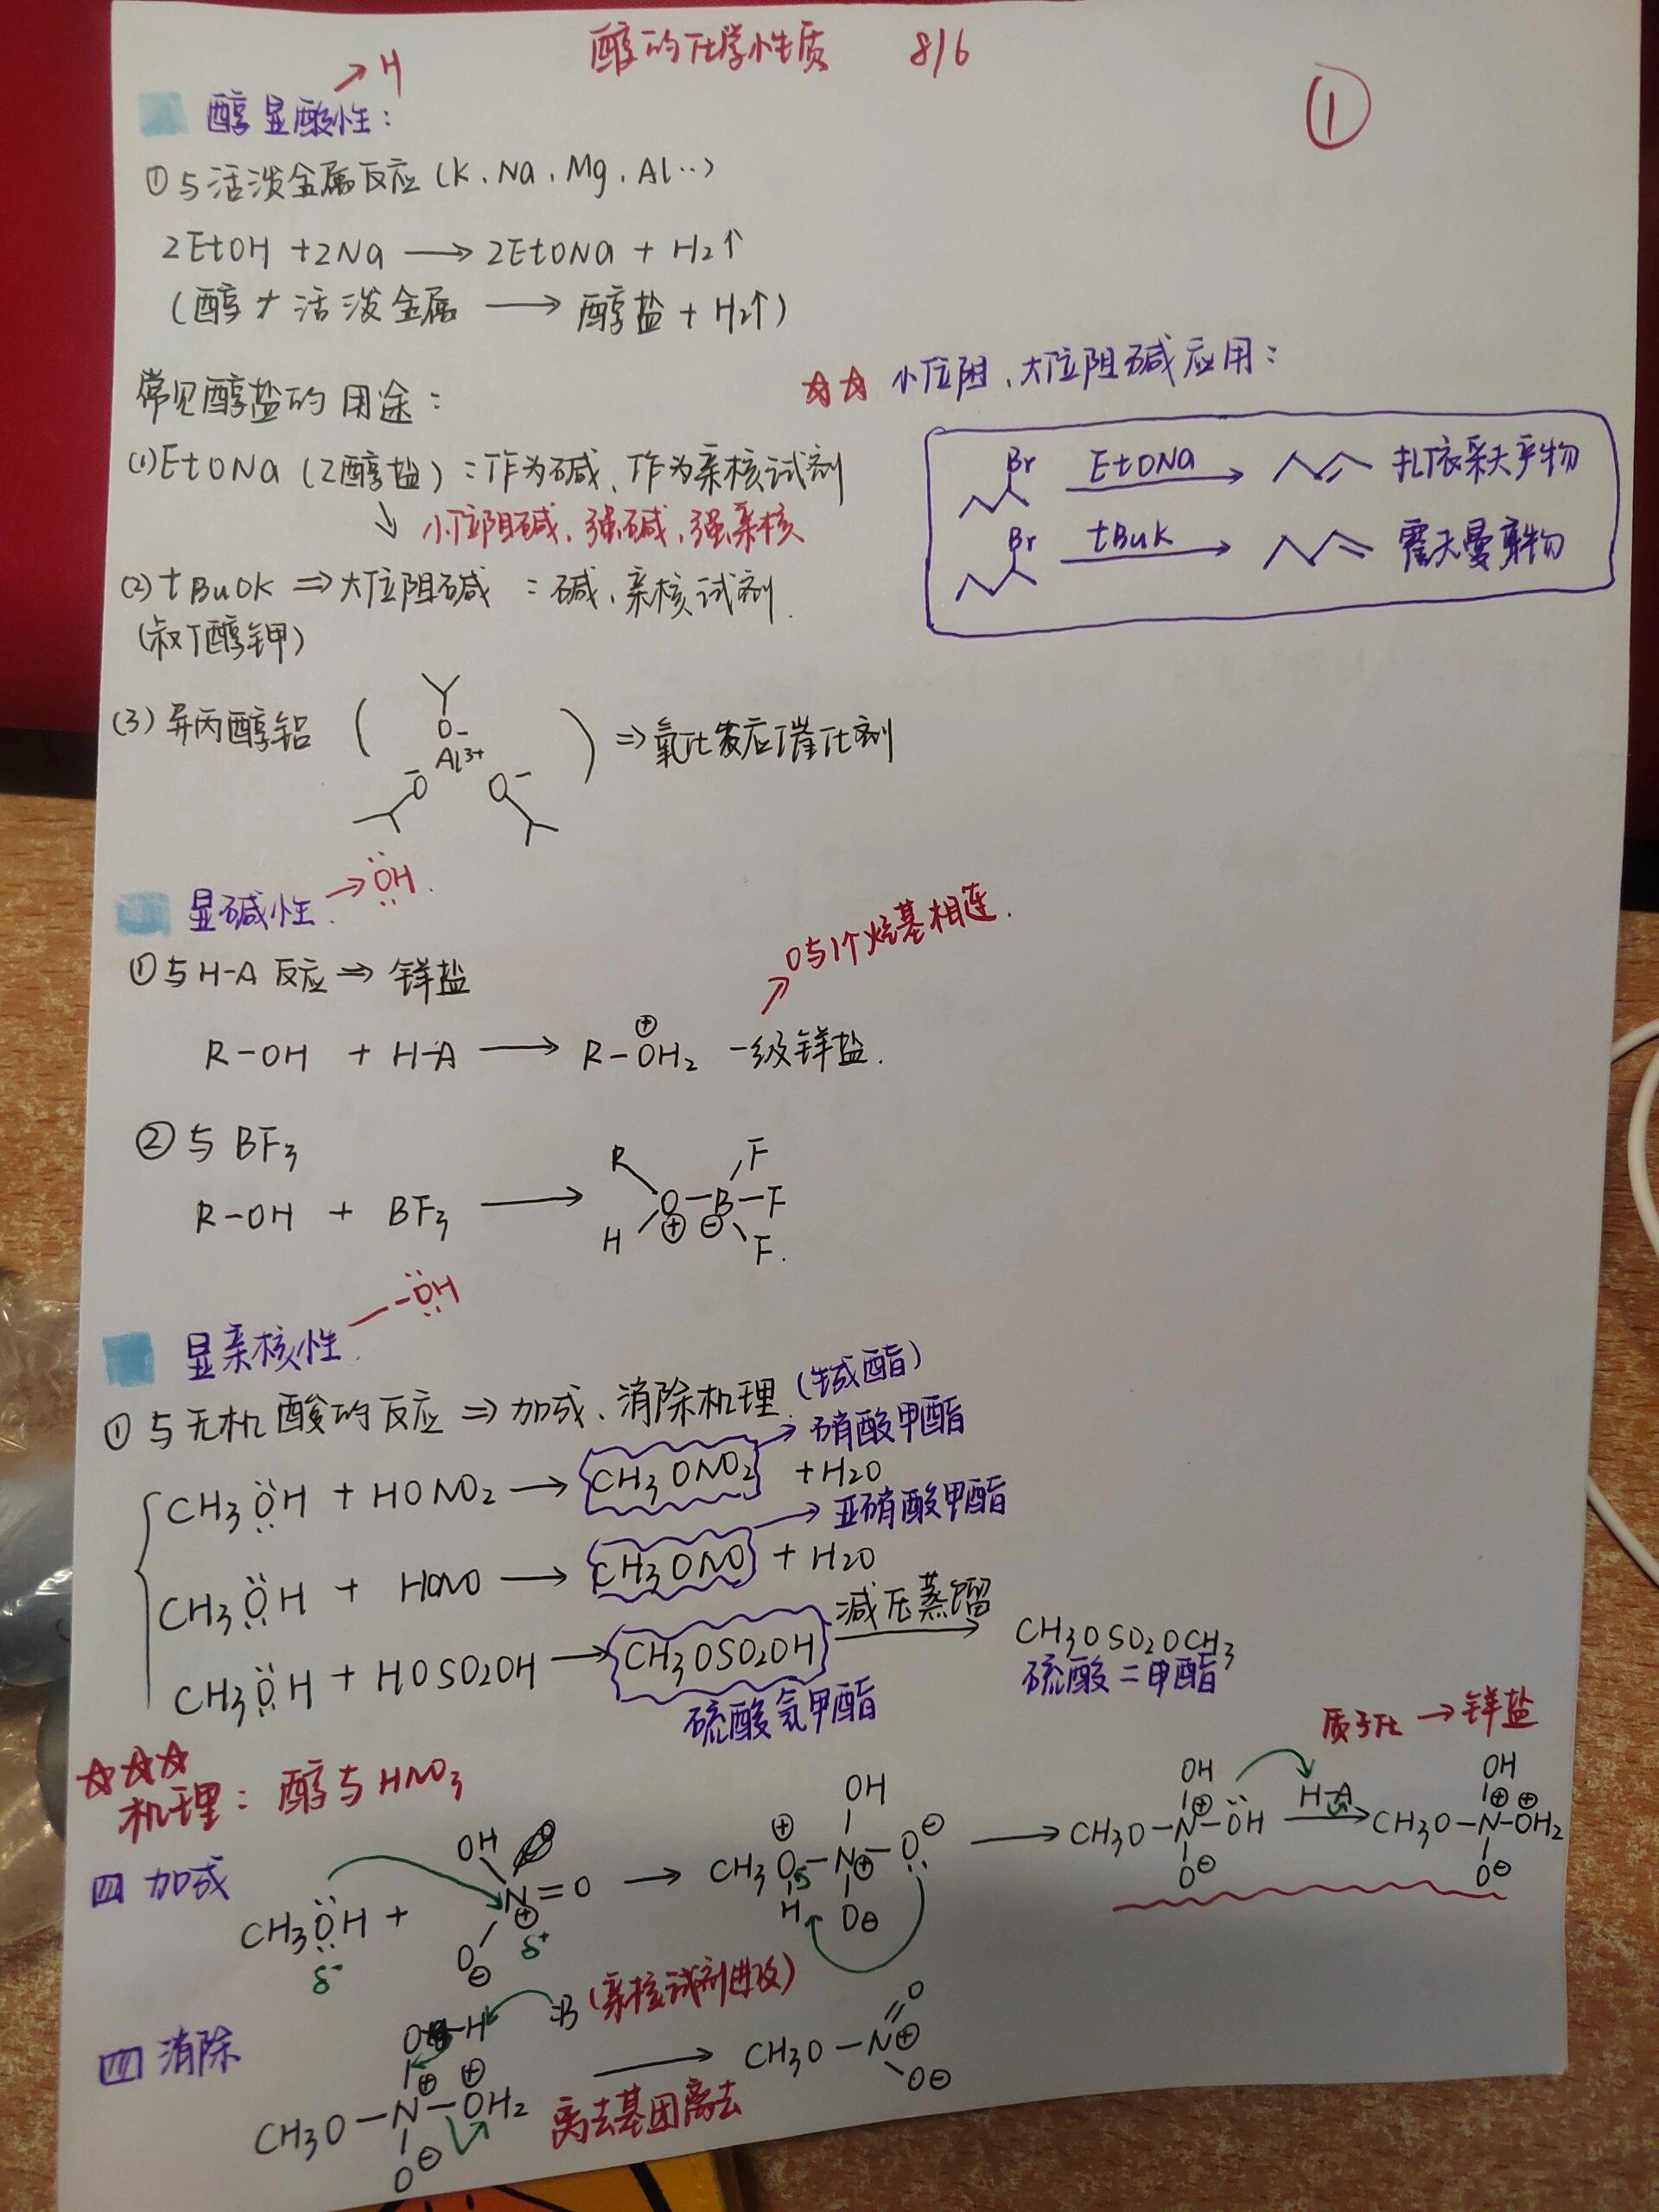 醇的化学性质 8/6
①
醇显酸性: → H
①与活泼金属反应(K、Na、Mg、Al…)
2EtOH + 2Na ⟶ 2EtONa + H₂↑
(醇 + 活泼金属 ⟶ 醇盐 + H₂↑)
常见醇盐的用途:
(1) EtONa (乙醇盐) : 作为碱、作为亲核试剂
↘ 小位阻碱、强碱、强亲核
(2) tBuOK ⇒ 大位阻碱 : 碱、亲核试剂.
(叔丁醇钾)
☆☆ 小位阻、大位阻碱应用:
Br EtONa ⟶ 扎依采夫产物
Br tBuK ⟶ 霍夫曼产物
(3) 异丙醇铝 ( O⁻ Al³⁺ O⁻ O⁻ ) ⇒ 氧化反应催化剂
显碱性. → ÖH.
①与H-A反应 ⇒ 𬭩盐
R-OH + H-A ⟶ R-O⊕H₂ 一级𬭩盐.
↗ O与1个烃基相连.
② 与 BF₃
R-OH + BF₃ ⟶ R H O⊕ - B⊖ F F F.
显亲核性. -ÖH
① 与无机酸的反应 ⇒ 加成、消除机理. (成酯)
CH₃ÖH + HONO₂ ⟶ CH₃ONO₂ + H₂O → 硝酸甲酯
CH₃ÖH + HONO ⟶ CH₃ONO + H₂O → 亚硝酸甲酯
CH₃ÖH + HOSO₂OH ⟶ CH₃OSO₂OH 减压蒸馏 ⟶ CH₃OSO₂OCH₃
硫酸氢甲酯 硫酸二甲酯
☆☆☆
机理: 醇与HNO₃
质子化 → 𬭩盐
加成
CH₃ÖH + OH N⊕ =O O⊖ ⟶ CH₃O⊕ H - N⊕ OH O⊖ - O⊖ ⟶ CH₃O-N⊕ OH O⊖ -ÖH H-A ⟶ CH₃O-N⊕ OH O⊖ -O⊕H₂
δ⁻ δ⁺
消除
:B (亲核试剂进攻)
CH₃O-N⊕ O-H O⊖ -O⊕H₂ ⟶ CH₃O-N⊕ =O O⊖
离去基团离去